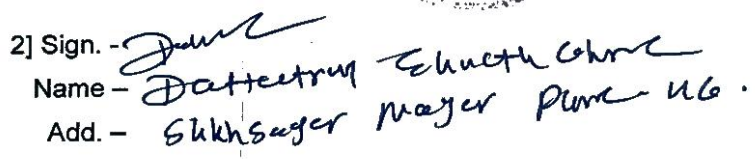 2] Sign. -
Name – Dattatray Eknath
Add. – Sukhsager Nager Pune - 46.